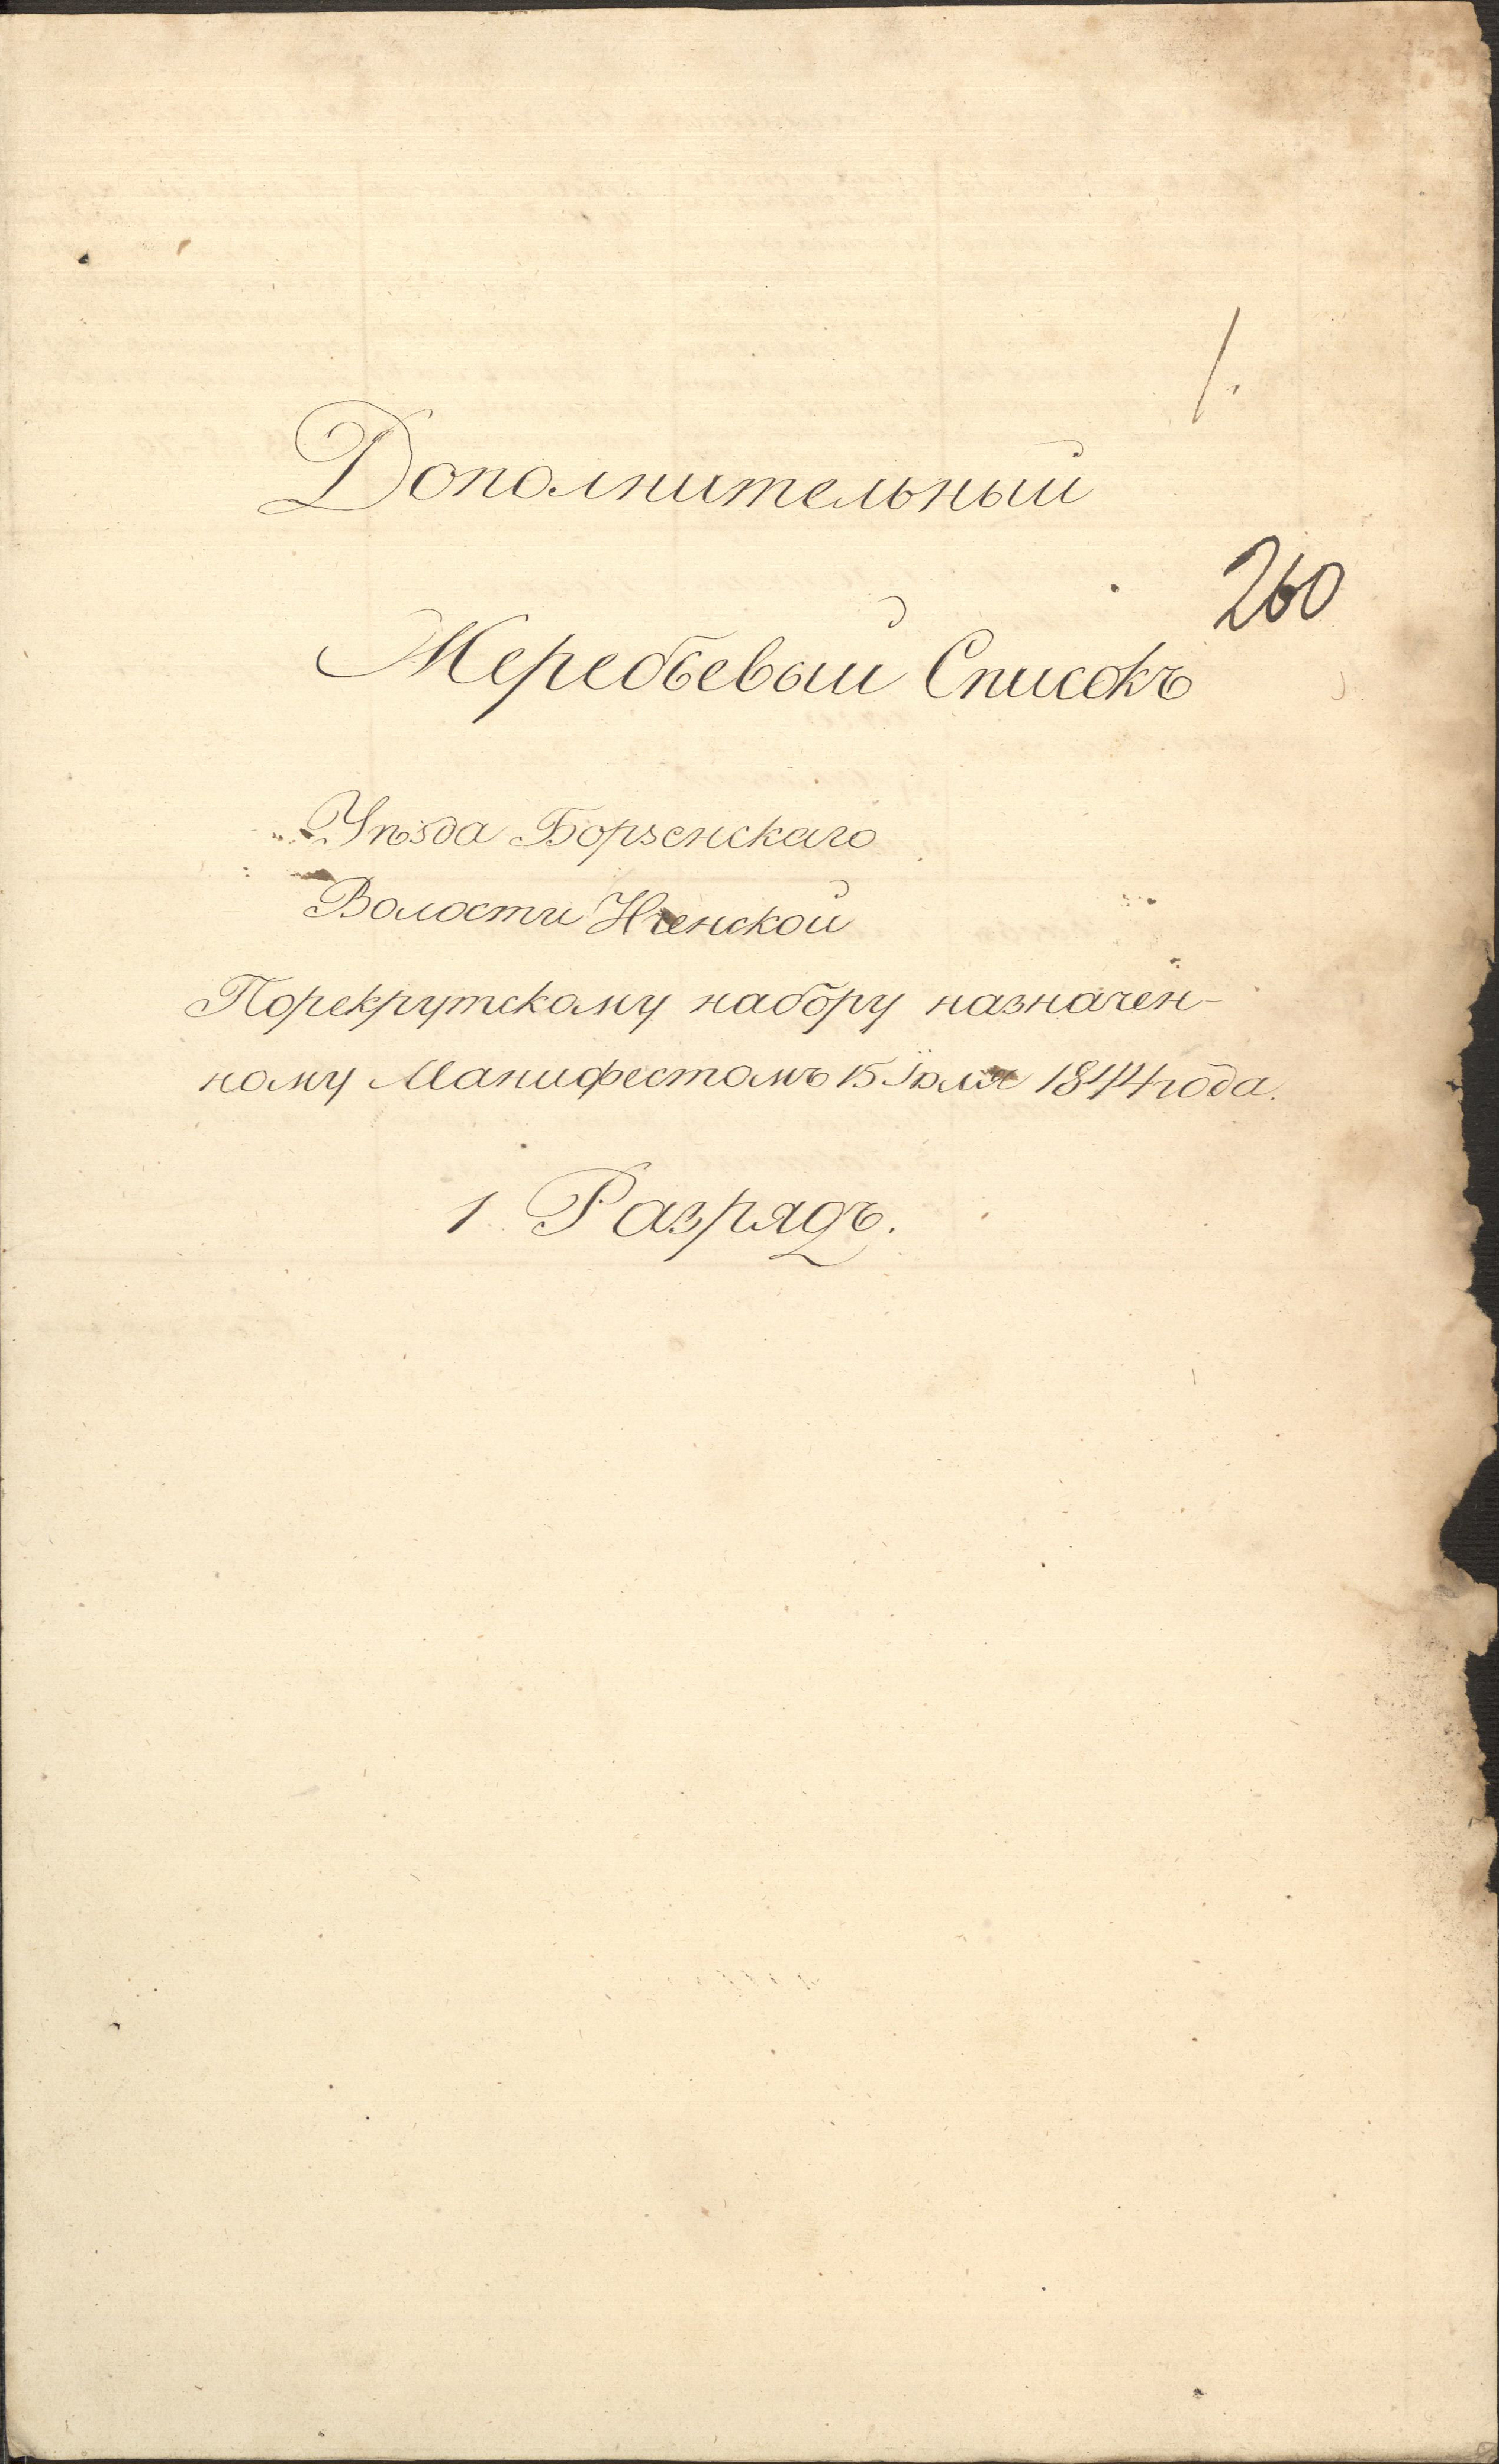 1.
Дополнительный
260
Жеребьевый Списокъ
Уѣзда Борзенскаго
Волости Иченской
Порекрутскому набору назначен-
ному Манифестомъ 15 Іюля 1844 года.
1 Разрядъ.